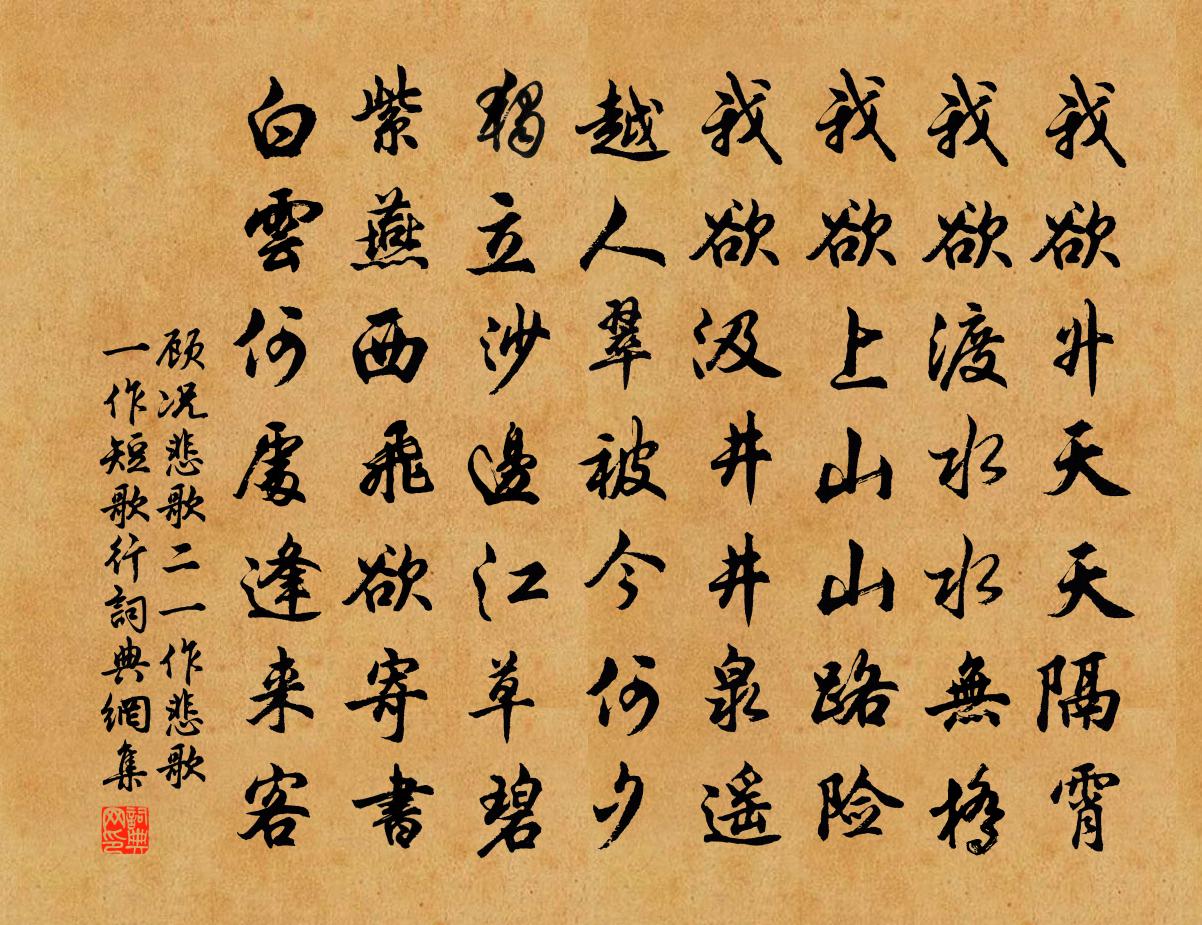 我欲升天天隔霄
我欲渡水水無橋
我欲上山山路险
我欲汲井井泉遥
越人翠被今何夕
獨立沙邊江草碧
紫燕西飛欲寄書
白雲何處逢来客
顾况悲歌二一作悲歌
一作短歌行詞典網集
詞典网印